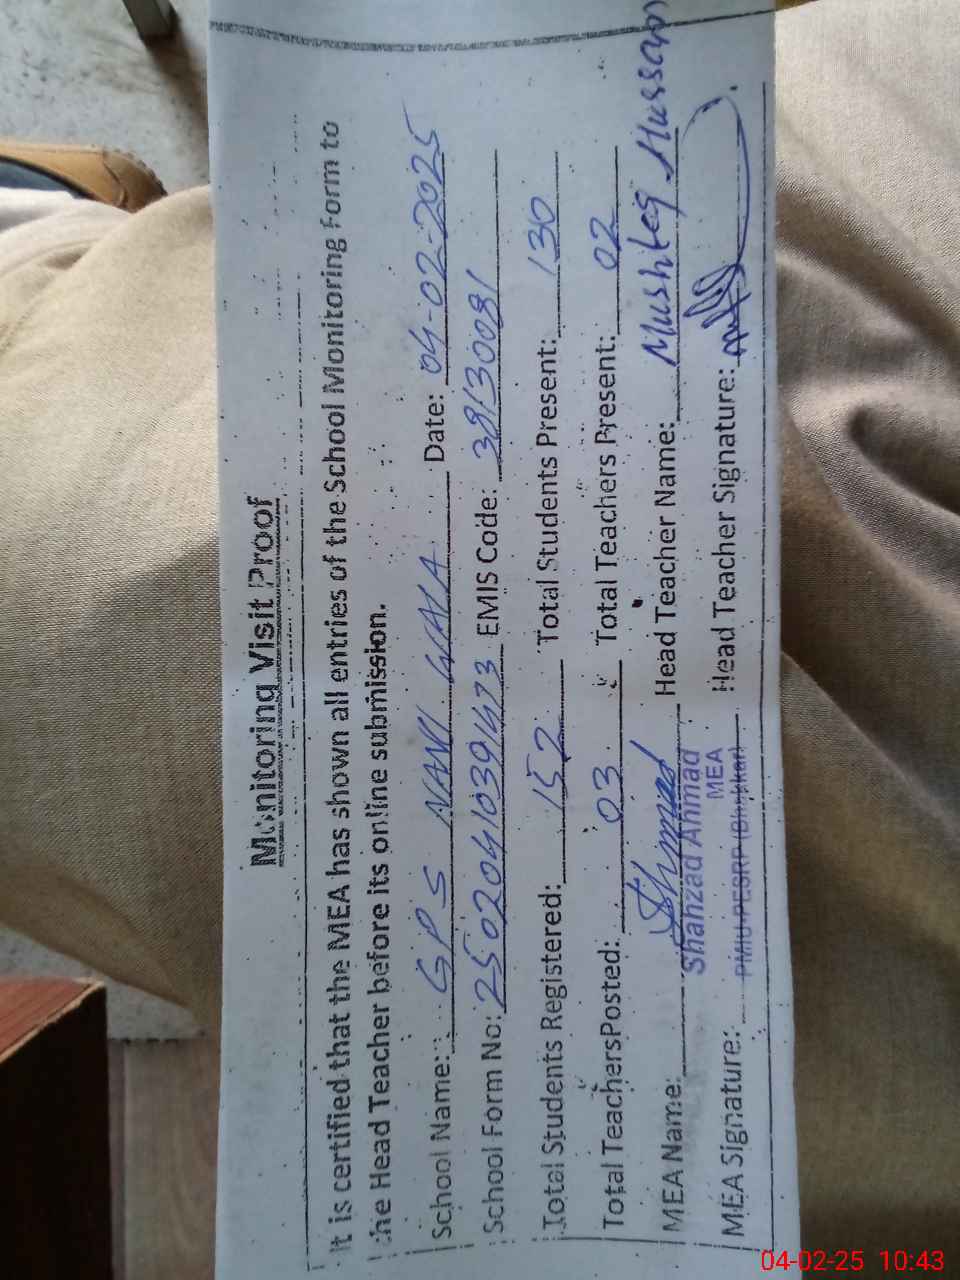 Monitoring Visit Proof
It is certified that the MEA has shown all entries of the School Monitoring Form to
the Head Teacher before its online submission.
School Name: GPS NANI WALA Date: 04-02-2025
School Form No: 25020410391473 EMIS Code: 38130081
Total Students Registered: 152 Total Students Present: 130
Total TeachersPosted: 03 Total Teachers Present: 02
MEA Name: Head Teacher Name: Mushtaq Hussain
Shahzad Ahmad
MEA
MEA Signature: PMIU-PESRP (Bhakkar) Head Teacher Signature:
04-02-25 10:43